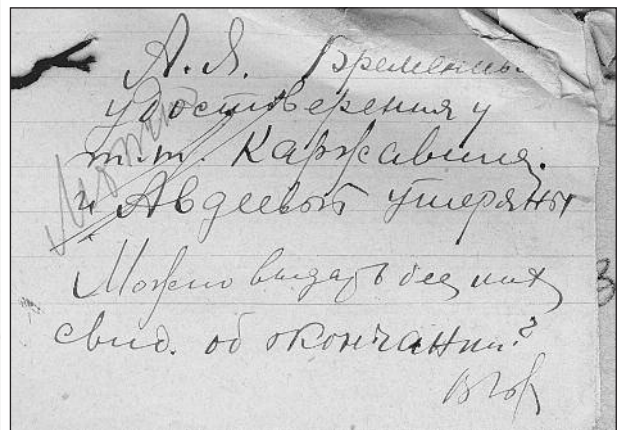 А.Я. Временные
удостверения у
т.т. Каржавина
и Авдеевой утеряны
Можно выдать без них
свид. об окончании?
Можно